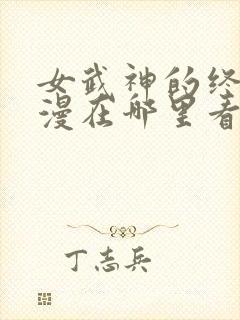 女武神的终
漫在哪里看
丁志兵